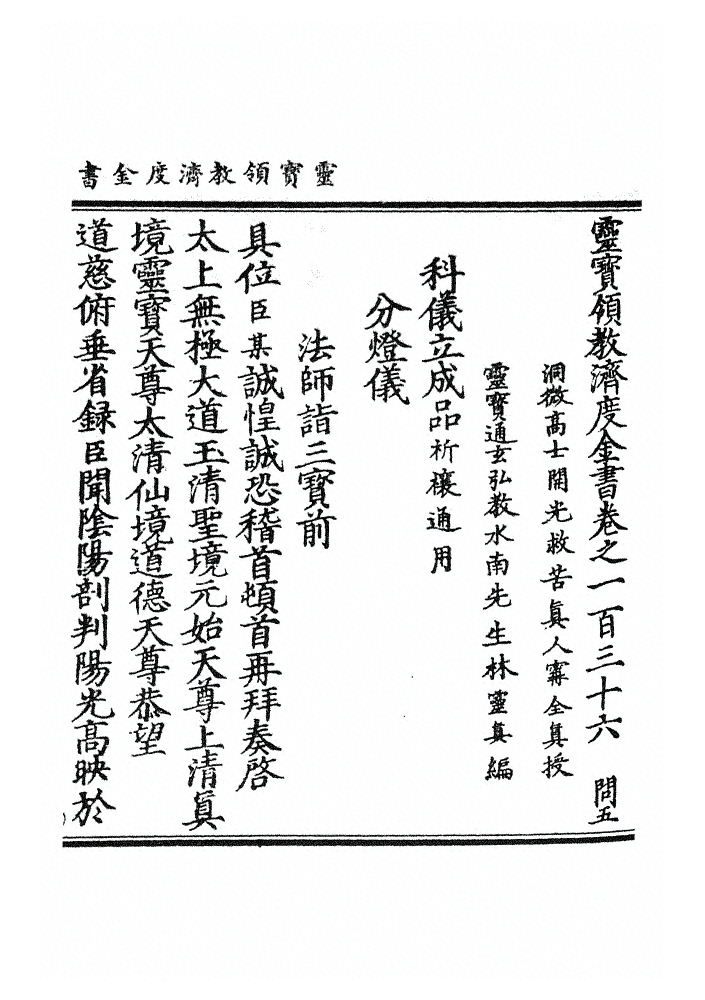 靈寶領教濟度金書
靈寶領教濟度金書卷之一百三十六　問五
洞微高士開光救苦眞人甯全眞授
靈寶通玄弘教水南先生林靈眞編
科儀立成品祈禳通用
分燈儀
法師詣三寶前
具位臣某誠惶誠恐稽首頓首再拜奏啓
太上無極大道玉清聖境元始天尊上清眞
境靈寶天尊太清仙境道德天尊恭望
道慈俯垂省録臣聞陰陽剖判陽光高映於